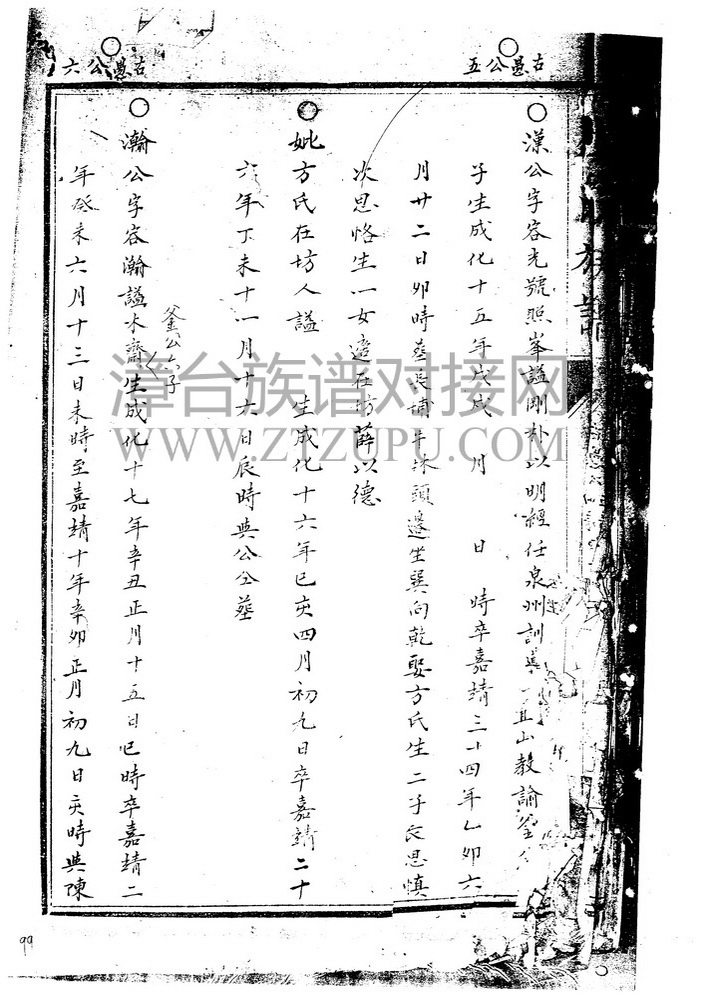 古愚公五
漢公字容光號照峯諡剛朴以明經任泉州訓
山教諭
子生成化十五年戊戌 月 日 時卒嘉靖三十四年乙卯六
月廿二日卯時葬長浦牛坑頭邊坐巽向乾娶方氏生二子長思慎
次思恪生一女適在坊薛以德
妣方氏在坊人諡 生成化十六年己亥四月初九日卒嘉靖二十
六年丁未十一月十六日辰時與公仝葬
古愚公六
釜公六子
瀚公字容瀚諡木齋生成化十七年辛丑正月十五日巳時卒嘉靖二
年癸未六月十三日未時至嘉靖十年辛卯正月初九日亥時與陳
漳台族谱对接网
WWW.ZTZUPU.COM
99